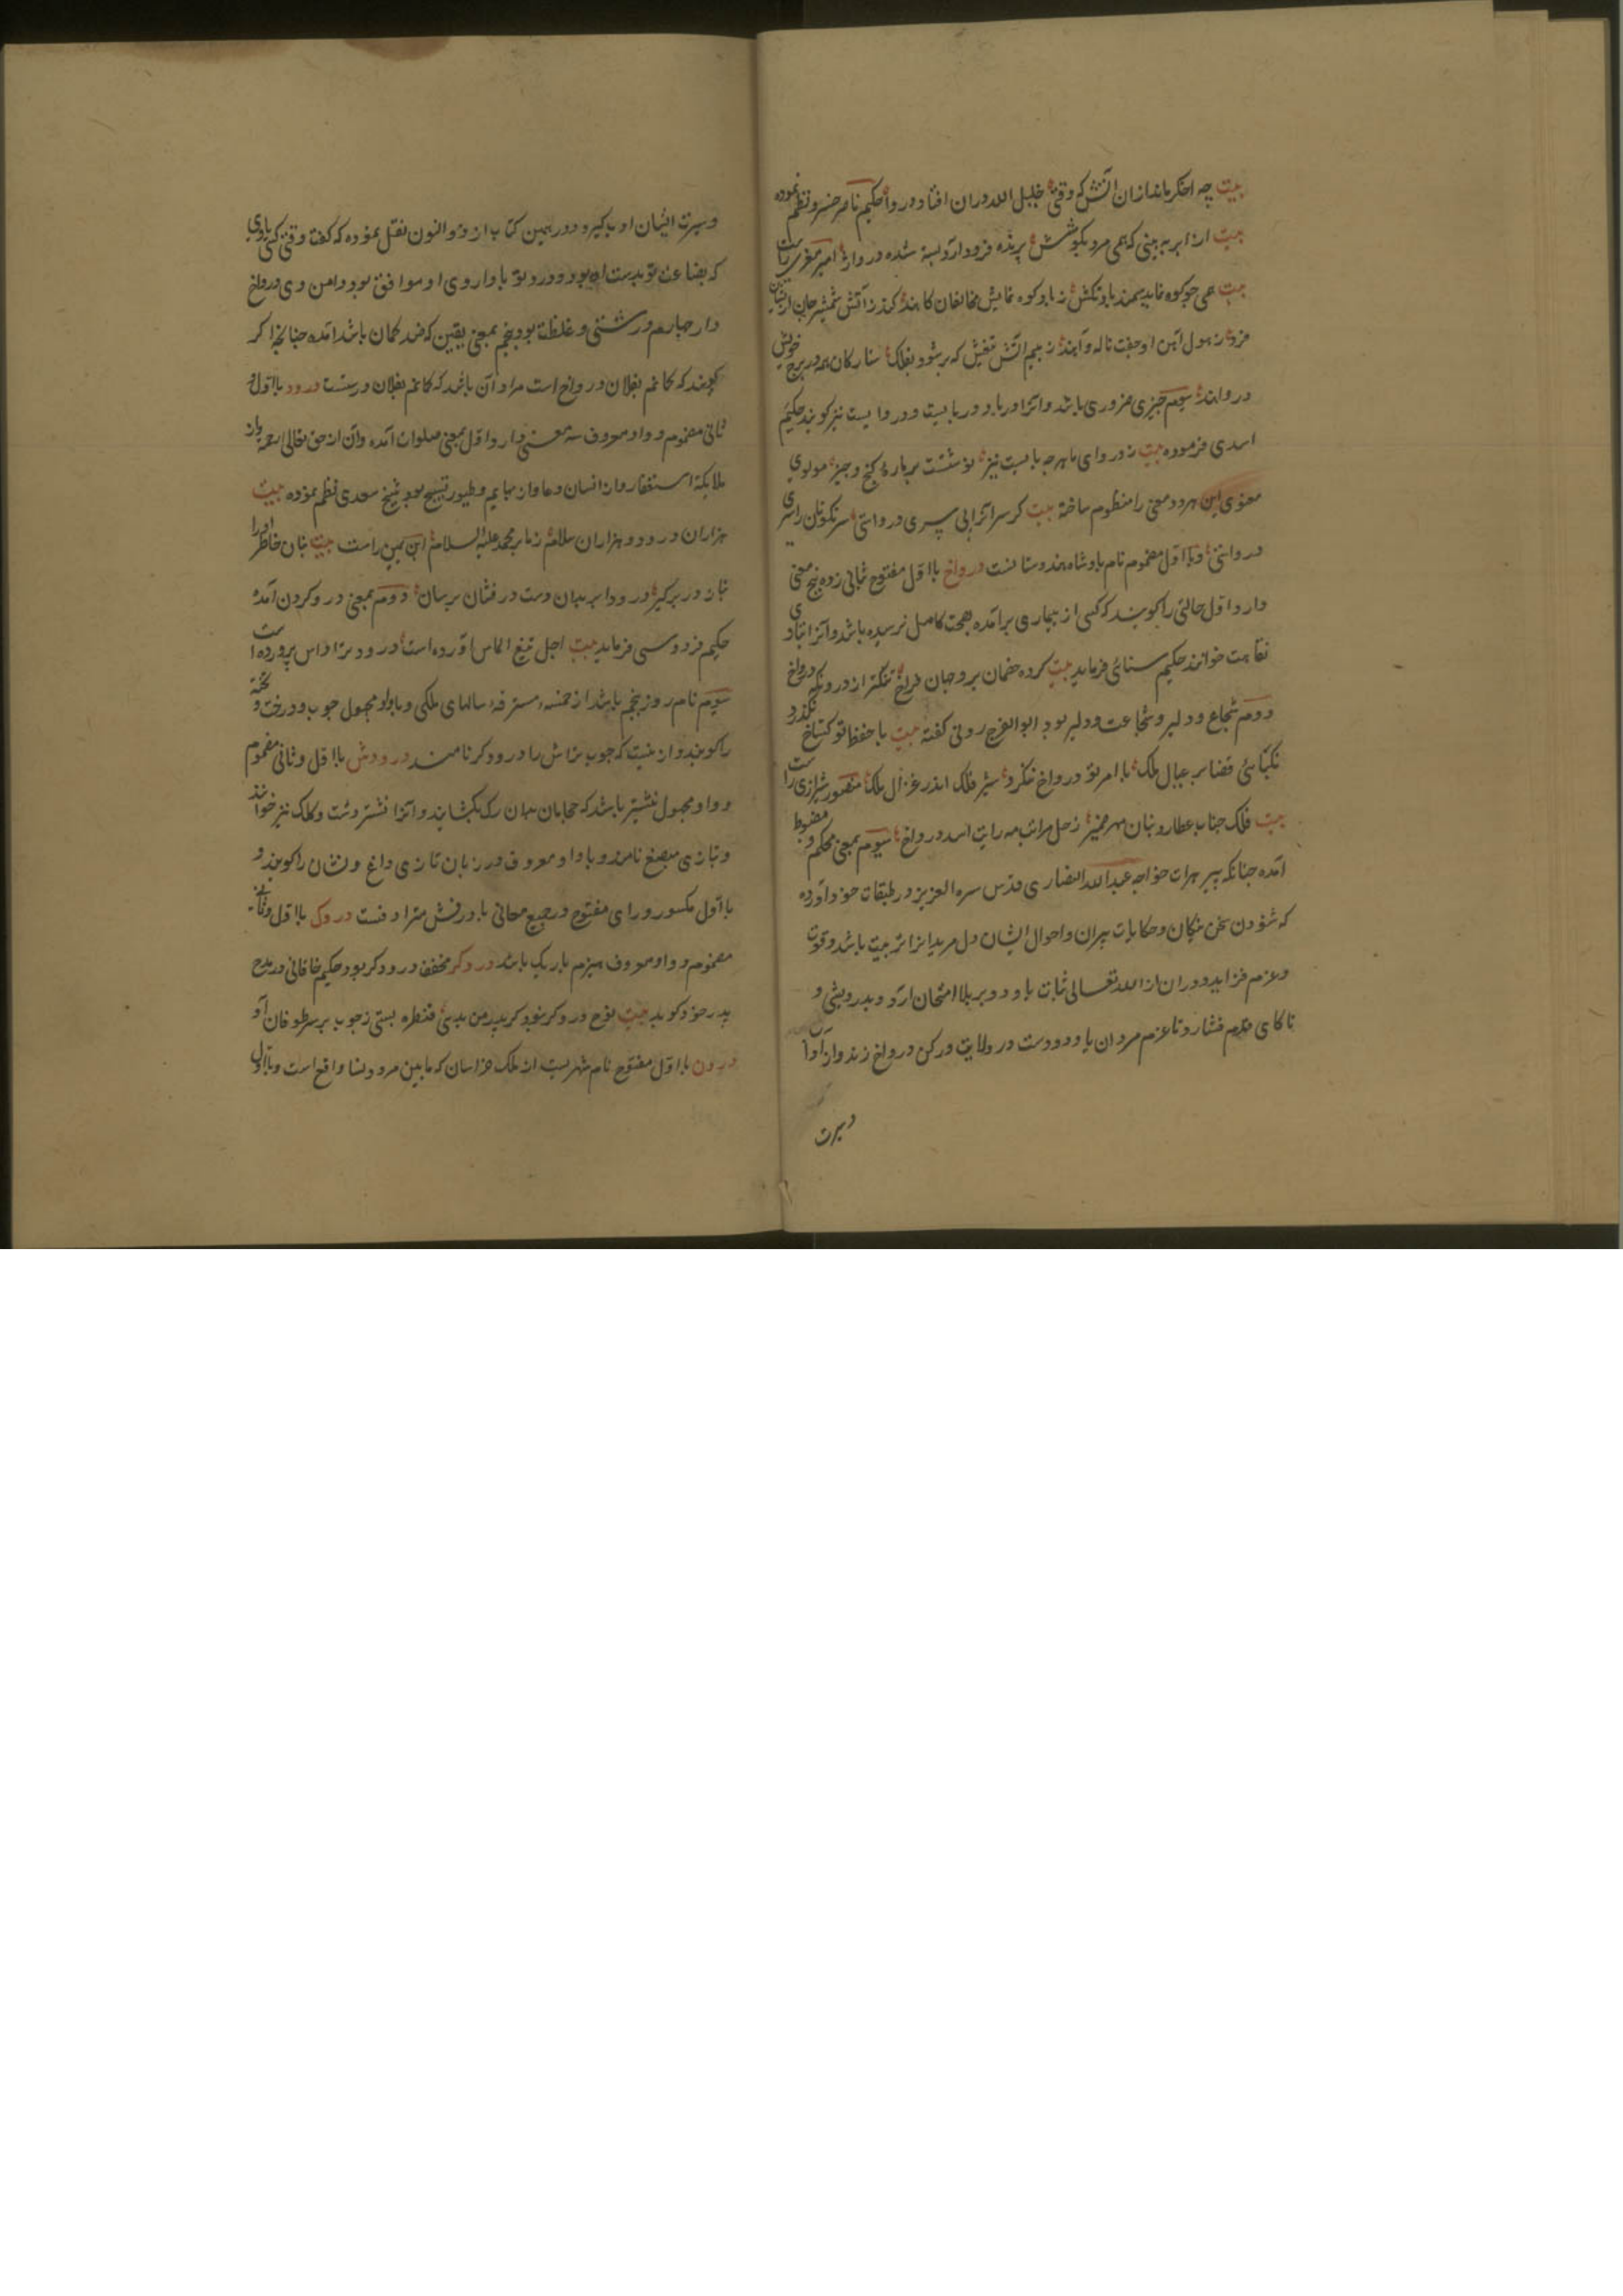 بیت چه اخکر ماند ازان آتش که وقتی خلیل الله دران افتاد دروا حکیم ناصر خسرو نظم نموده
بیت از ابر به بینی که همی مرد بکوشش پرنده فرود آرد بسته شده در وا امیر معزی راست
بیت همی چو کوه نماید سمند باد تکش ز باد کوه نمایش مخالفان کاهند گذر ز آتش شمشیر
ز هول آن او جفت ناله و آیند ز بیم آتش تیغش که بر شود بفلک ستارکان همه در برج خویش
در وایند سیوم چیزی ضروری باشد و آنرا دربا و دربایست و دروایست نیز کویند حکیم
اسدی فرموده بیت ز دروای ما هرچه بایست نیز نوشتست بر بارهٔ کنج و چیز مولوی
معنوی این هر دو معنی را منظوم ساخته بیت کر سر آنرا بی سری درواستی سرنکونان را سری
درواستی و با اول مضموم نام پادشاه هندوستانست درواخ با اول مفتوح بثانی زده پنج معنی
دارد اول حالتی را کویند که کسی از بیماری برآمده بصحت کامل نرسیده باشد و آنرا بتازی
نقاهت خوانند حکیم سنائی فرماید بیت کرده خصمان برو جهان فراخ تنکتر از درونکه درواخ
دوم شجاع و دلیر و شجاعت و دلیر بود ابو الفرج رونی کفته بیت با حفظ تو کستاخ نکذرد
نکبائی قضا بر عیال ملک با امر تو درواخ نکرد شیر فلک اندر غزال ملک منصور شیرازی راست
بیت فلک جناب عطارد بنان مهر ضمیر زحل مراتب مه رایت اسد درواخ سیوم بمعنی محکم و مضبوط
آمده چنانکه پیر هرات خواجه عبدالله انصاری قدس سره العزیز در طبقات خود آورده
که شنودن سخن نیکان و حکایات پیران و احوال ایشان دل مریدانرا تربیت باشد و قوت
و عزم فزاید و دران از الله تعالی ثبات یابد و بر بلا امتحان آرد و بدرویشی و
ناکامی قدم فشارد تا عزم مردان یابد و دست در ولایت در کن درواخ زند و از آداب
و سیرت
و سیرت ایشان ادب کیرد و در همین کتاب از ذو النون نقل نموده که کفت وقتی کسی
که بضاعت تو بدست او بود و درد تو با داروی او موافق بود دامن وی درواخ
دار چهارم درشتی و غلظت بود پنجم بمعنی یقین که ضد کمان باشد آمده چنانچه اکر
کویند که کمانم بفلان درواخ است مراد آن باشد که کمانم بفلان درستست درود با اول و
ثانی مضموم و واو معروف سه معنی دارد اول بمعنی صلوات آمده و آن از حق تعالی رحمه و از
ملایکه استغفار و از انسان دعا و از بهایم و طیور تسبیح بود شیخ سعدی نظم نموده بیت
هزاران درود و هزاران سلام ز ما بر محمد علیه السلام ابن یمین راست بیت بنان خاطر او را
بناز در بر کیر درود ابر بدان دست درفشان برسان دوم بمعنی درو کردن آمده
حکیم فردوسی فرماید بیت اجل تیغ الماس آورده است درود ترا داس پرورده است
سیوم نام روز پنجم باشد از خمسه مسترقه سالهای ملکی و با واو مجهول چوب و درخت و تخته
را کویند و از ینست که چوب تراش را درودکر نامند درودش با اول و ثانی مضموم
و واو مجهول نشتیر باشد که حجامان بدان رک بکشایند و آنرا نشتر و شت و کلک نیز خوانند
و بتازی مبضغ نامند و با واو معروف در زبان تازی داغ و نشان را کویند و
با اول مکسور و رای مفتوح در جمیع معانی با درفش مترادفست دروک با اول و ثانی
مضموم و واو معروف هیزم باریک باشد دروکر مخفف درودکر بود حکیم خاقانی در مدح
پدر خود کوید بیت نوح دروکر نبود کر پدر من بدی قنطره بستی ز چوب بر سر طوفان او
درون با اول مفتوح نام شهریست از ملک خراسان که مابین مرو و نسا واقع است و با اول